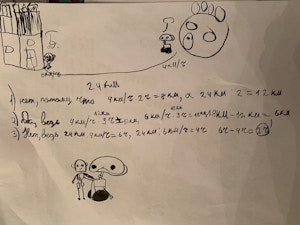 4 км/ч
24 км
1) нет, потому что 4 км/ч 2ч = 8 км, а 24 км : 2 = 12 км
2) Да, ведь 4 км/ч 3ч = 12 км, 6 км/ч 3ч = 18 км 18 км - 12 км = 6 км
3) Нет, ведь 24 км 4 км/ч = 6ч, 24 км : 6 км/ч = 4ч 6ч - 4ч =